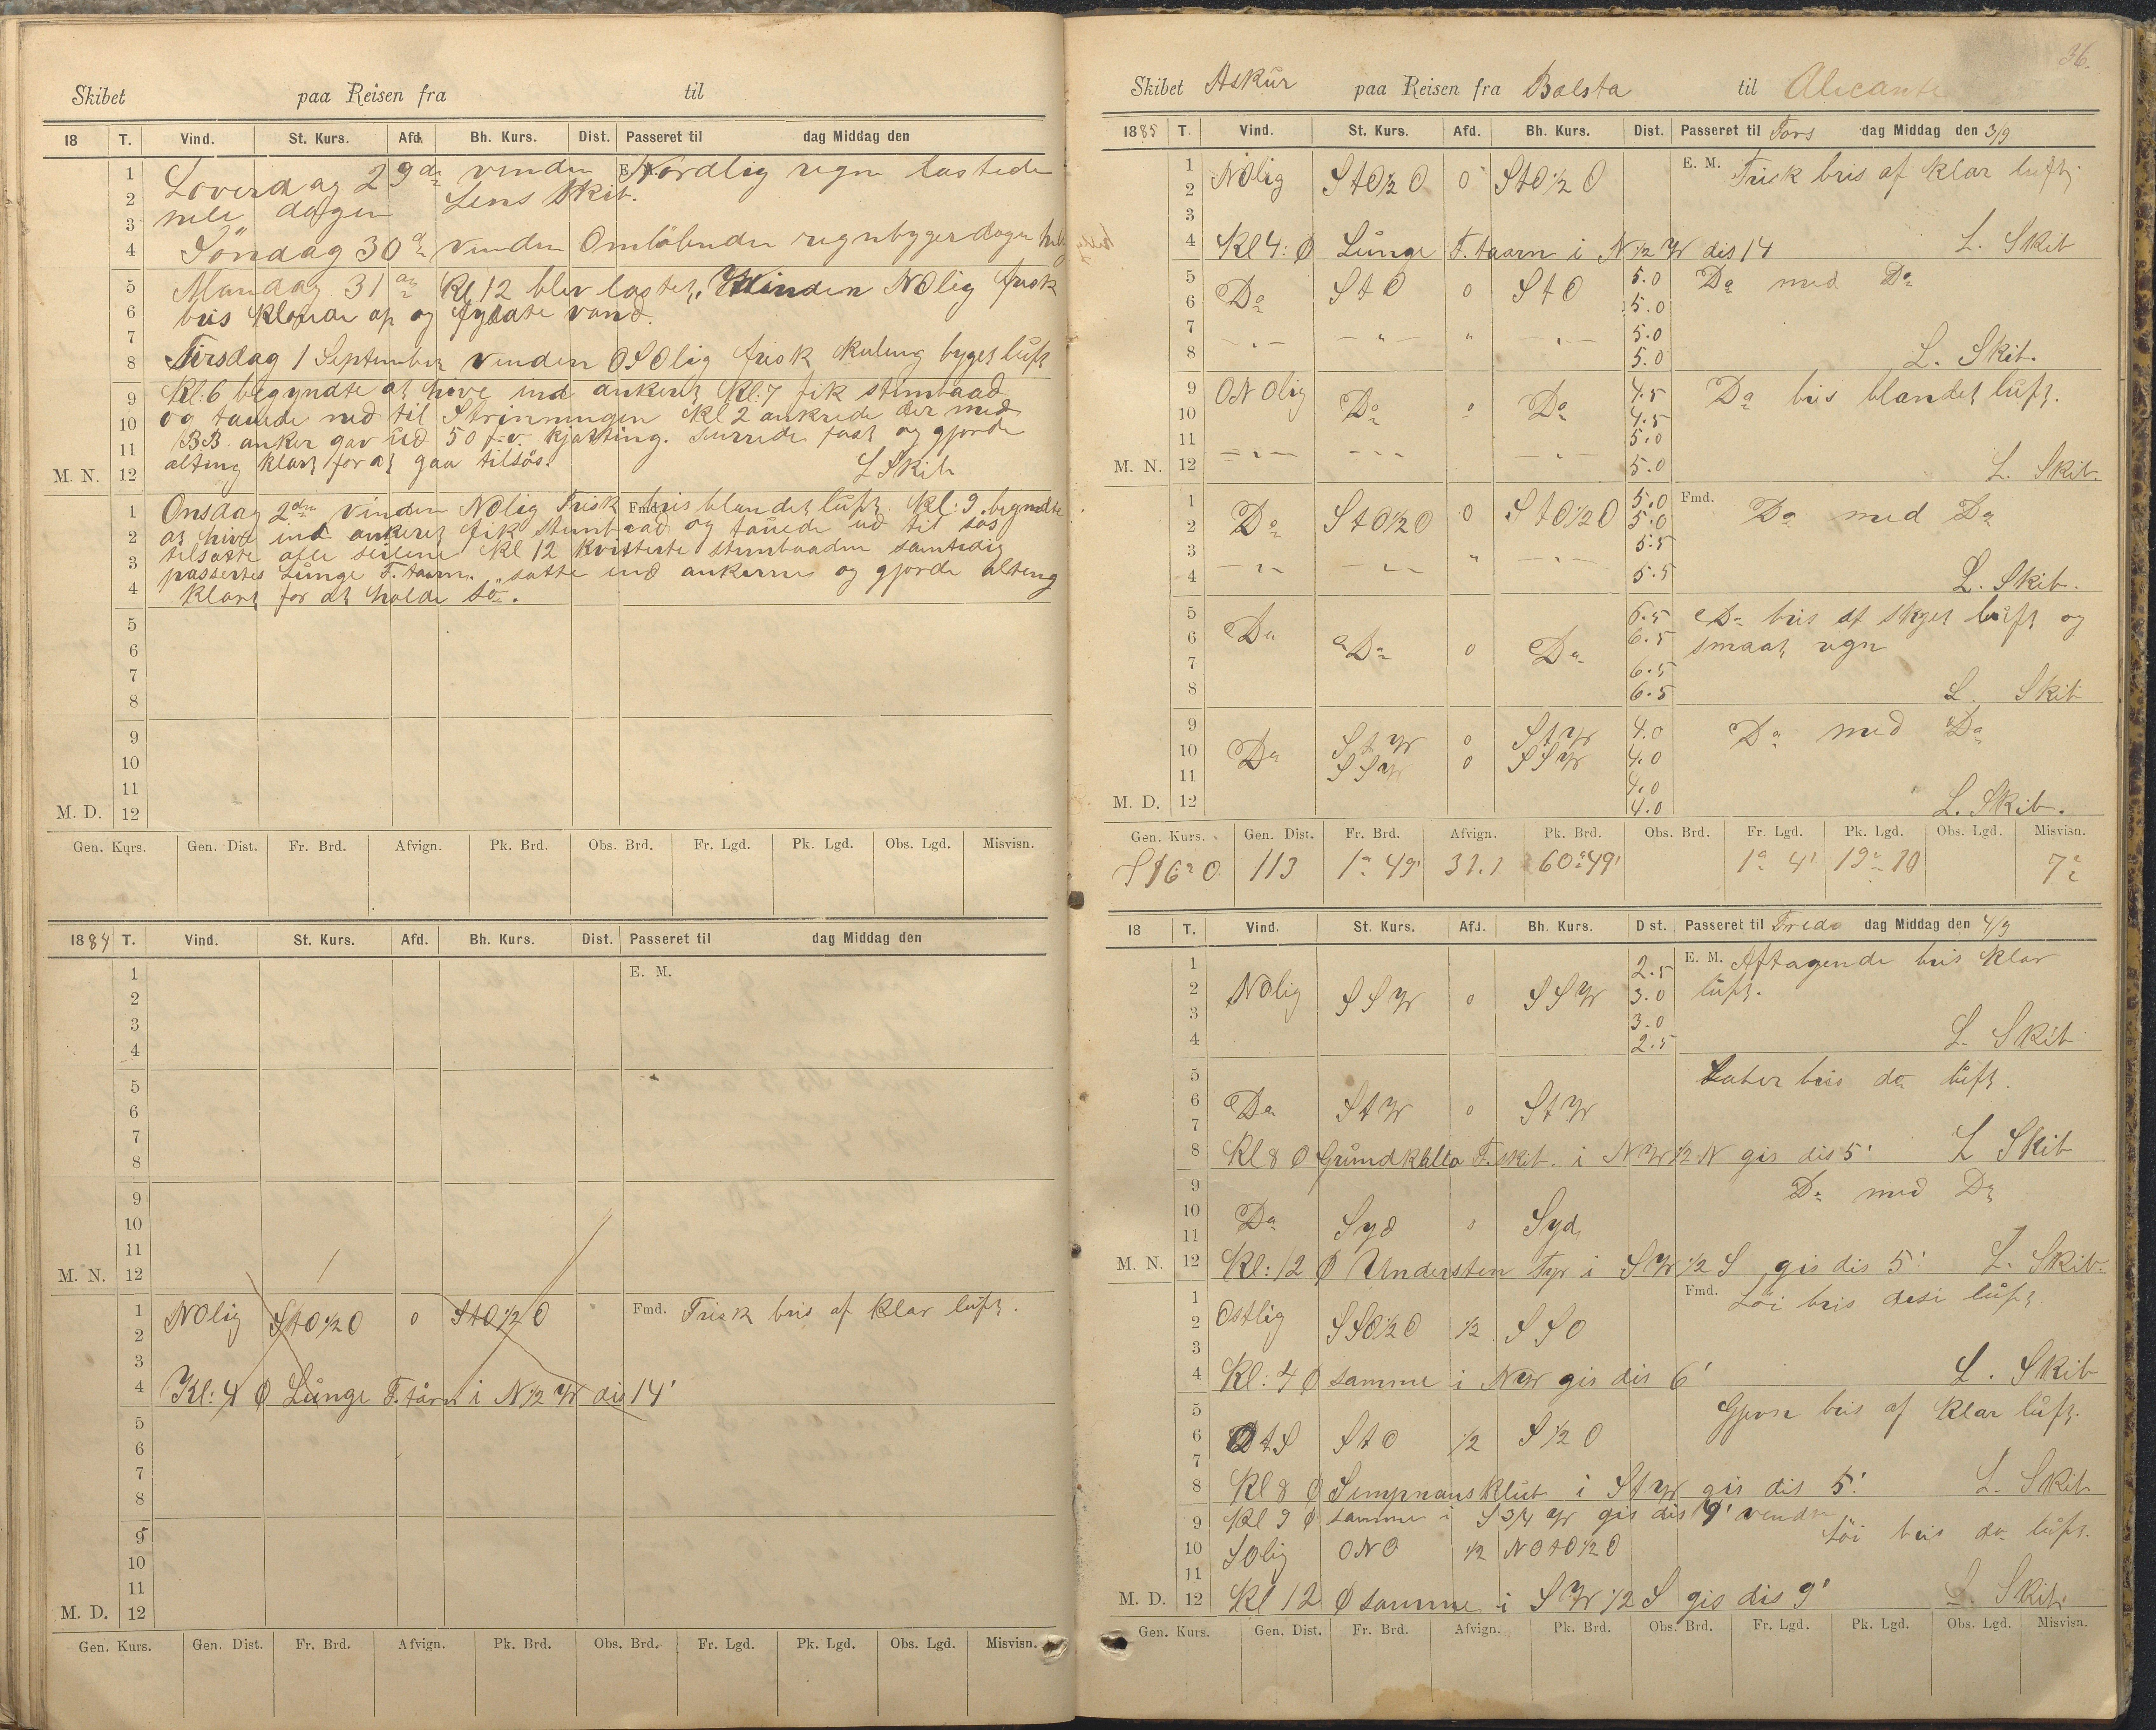 Skibet paa Reisen fra til
18 T. Vind. St. Kurs. Afd. Bh. Kurs. Dist. Passeret til dag Middag den
Loverdag 29de vinden Nordlig regn lastede
hele dagen Lens Skib.
Søndag 30de vinden Omløbende regnbyger dagen
Mandag 31te Kl 12 blev lastet, Vinden NOlig frisk
bris klarede op og fyldte vand.
Tirsdag 1 September vinden OSOlig frisk kuling byget luft
Kl:6 begyndte at hive ind ankeret Kl:7 fik stimbaad
og tauede ned til Skrinningen Kl 2 ankrede der med
BB anker gav ud 50 f.v. kjætting. surrede fast og gjorde
alting klart for at gaa tilsøs.
L Skib
Onsdag 2den Vinden NOlig Frisk bris blandet luft. Kl:9 begyndte
at hive ind ankeret fik stimbaad og tauede ud til søs
tilsatte alle seilene Kl 12 kvitterte stimbaaden samtidig
passertes Lunge F. taarn. satte ind ankerne og gjorde alting
klart for at holde sø.
1
2
3
4
5
6
7
8
9
10
11
M. N. 12
1 Fmd.
2
3
4
5
6
7
8
9
10
11
M. D. 12
Gen. Kurs. Gen. Dist. Fr. Brd. Afvign. Pk. Brd. Obs. Brd. Fr. Lgd. Pk. Lgd. Obs. Lgd. Misvisn.
1884 T. Vind. St. Kurs. Afd. Bh. Kurs. Dist. Passeret til dag Middag den
1 E. M.
2
3
4
5
6
7
8
9
10
11
M. N. 12
1 NOlig StO½O 0 StO½O Fmd. Frisk bris af klar luft.
2
3
4 Kl:4 O Lunge F. tårn i N½W dis 14'
5
6
7
8
9
10
11
M. D. 12
Gen. Kurs. Gen. Dist. Fr. Brd. Afvign. Pk. Brd. Obs. Brd. Fr. Lgd. Pk. Lgd. Obs. Lgd. Misvisn.
36.
Skibet Askur paa Reisen fra Bolsta til Alicante
1885 T. Vind. St. Kurs. Afd. Bh. Kurs. Dist. Passeret til Tors dag Middag den 3/9
1 E. M. Frisk bris af klar luft
2 NOlig StO½O 0 StO½O
3
4 Kl 4: O Lunge F. taarn i N½W dis 14 L. Skib
5 StO 0 StO 5.0 Do med Do
6 Do 5.0
7 5.0
8 5.0 L. Skib.
9 ONOlig 4.5 Do bris blandet luft.
10 Do 0 Do 4.5
11 5.0
M. N. 12 5.0 L. Skib.
1 5.0 Fmd. Do med Do
2 Do StO½O 0 StO½O 5.0
3 5.5
4 5.5 L. Skib.
5 6.5 Do bris af skyet luft og
6 Do Do 0 Do 6.5 smaat regn
7 6.5
8 6.5 L. Skib
9 StW 0 StW 4.0 Do med Do
10 Do SSW 0 SSW 4.0
11 4.0
M. D. 12 4.0 L. Skib.
Gen. Kurs. Gen. Dist. Fr. Brd. Afvign. Pk. Brd. Obs. Brd. Fr. Lgd. Pk. Lgd. Obs. Lgd. Misvisn.
S16°O 113 1° 49' 31.1 60°49' 1° 4' 19° 10 7°
18 T. Vind. St. Kurs. Afd. Bh. Kurs. Dist. Passeret til Freda dag Middag den 4/9
1 2.5 E. M. Aftagende bris klar
2 NOlig SSW 0 SSW 3.0 luft.
3 3.0
4 2.5 L. Skib
5 Laber bris do luft.
6 Do StW 0 StW
7
8 Kl 8 O Grundkallo F. skib. i NW½N gis dis 5' L Skib
9 Do med Do
10 Do Syd 0 Syd
11
M. N. 12 Kl:12 O Understen Fyr i SW½S gis dis 5' L. Skib.
1 Fmd. Løi bris disi luft.
2 Ostlig SSO½O ½ SSO
3
4 Kl:4 O samme i NW gis dis 6' L. Skib
5 Gjevn bris af klar luft.
6 OtS StO ½ S½O
7
8 Kl 8 O Simpnausklub i StW gis dis 5' L. Skib
9 Kl 9 O samme i S3/4W gis dis 9' vendte
10 SOlig ONO ½ NOtO½O Løi bris do luft.
11
M. D. 12 Kl 12 O samme i SW½S gis dis 9' L. Skib.
Gen. Kurs. Gen. Dist. Fr. Brd. Afvign. Pk. Brd. Obs. Brd. Fr. Lgd. Pk. Lgd. Obs. Lgd. Misvisn.